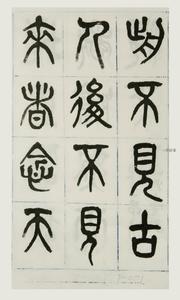 前不見古
人後不見
來者念天